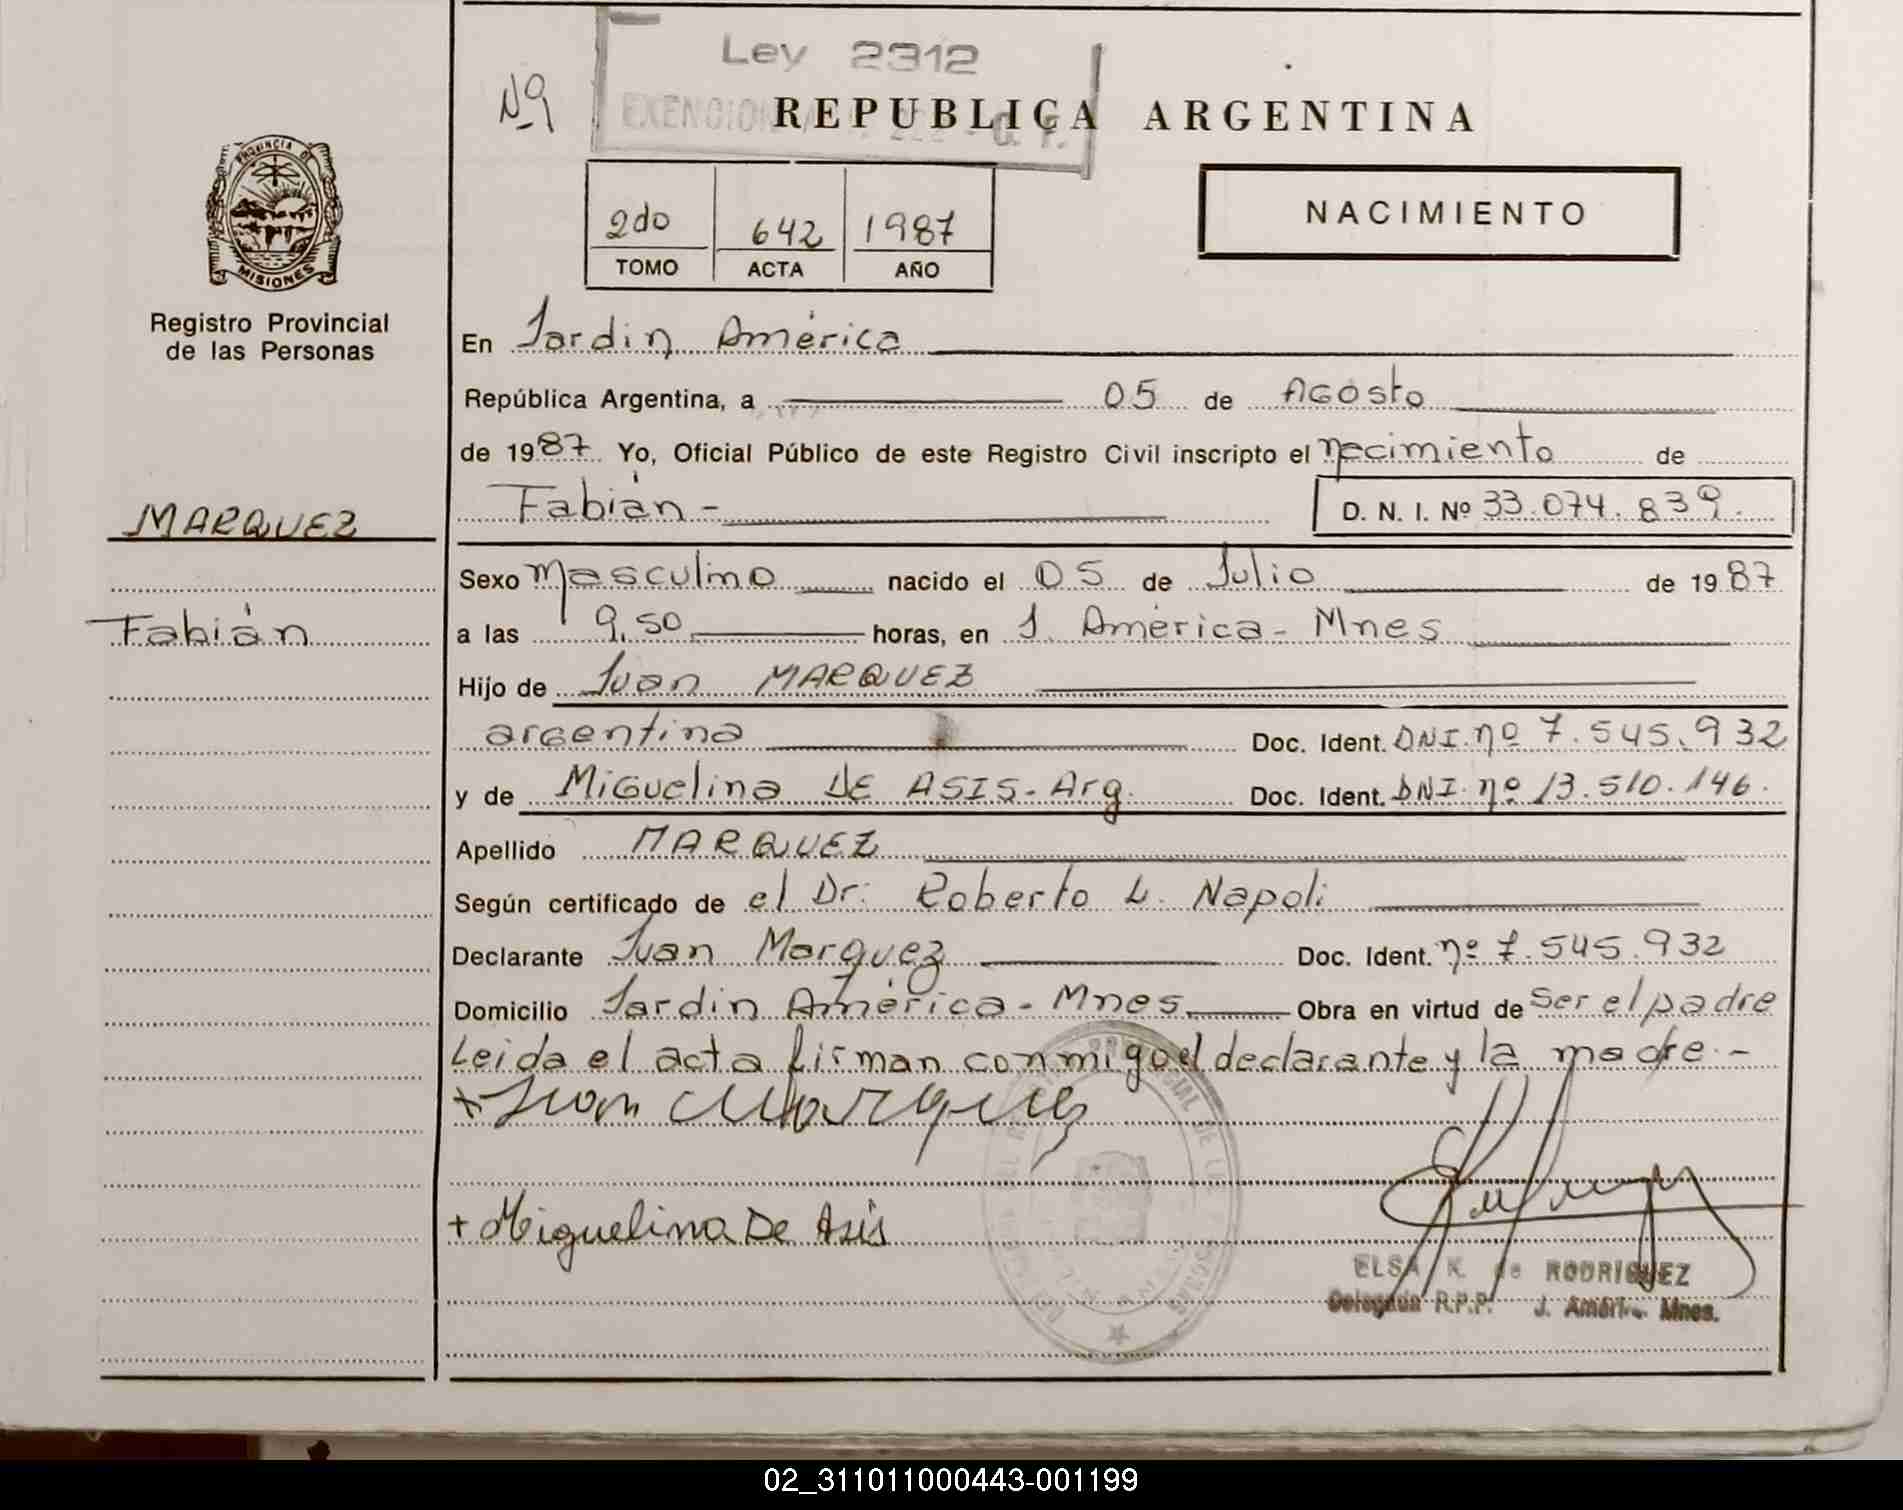 Ley 2312
Nº
REPUBLICA ARGENTINA
PROVINCIA DE
MISIONES
Registro Provincial
de las Personas
2do 642 1987
TOMO ACTA AÑO
NACIMIENTO
En Jardin América
República Argentina, a 05 de Agosto
de 1987 Yo, Oficial Público de este Registro Civil inscripto el nacimiento de
Fabián - D. N. I. Nº 33.074.839.
MARQUEZ
Fabián
Sexo Masculino nacido el 05 de Julio de 1987
a las 9,50 horas, en J. América - Mnes
Hijo de Juan MARQUEZ
argentina Doc. Ident. DNI. nº 7.545.932
y de Miguelina DE ASIS - Arg. Doc. Ident. DNI. nº 13.510.146.
Apellido MARQUEZ
Según certificado de el Dr. Roberto L. Napoli
Declarante Juan Marquez Doc. Ident. nº 7.545.932
Domicilio Jardin América - Mnes. Obra en virtud de Ser el padre
Leida el acta firman conmigo el declarante y la madre.-
+ Juan Marquez
+ Miguelina De Asis
ELSA K. de RODRIGUEZ
Delegada R.P.P. J. América Mnes.
02_311011000443-001199